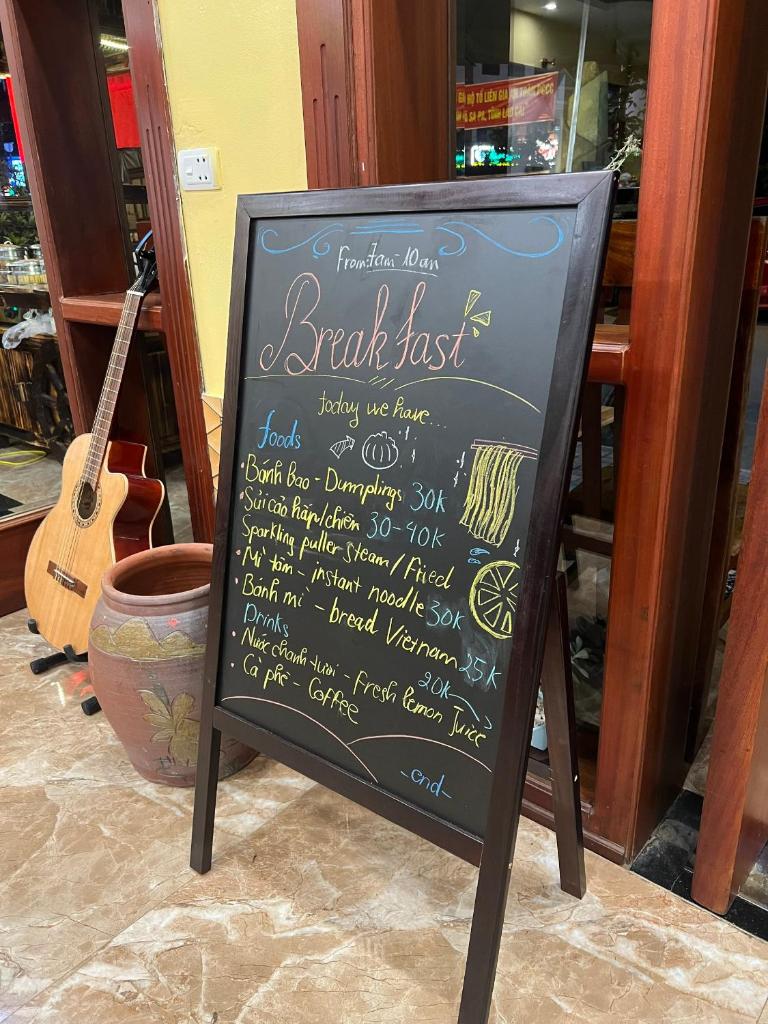 From 7am - 10am
Breakfast
today we have...
foods
Bánh bao - Dumplings 30K
Sủi cảo hấp/chiên 30-40K
Sparkling puller steam/Fried
Mì tôm - instant noodle 30K
Bánh mì - bread Vietnam 25K
Drinks
Nước chanh tươi - Fresh lemon Juice 20K
Cà phê - Coffee
-end-
HỘ TỔ LIÊN GIA AN TOÀN PCCC
SA PA, TỈNH LÀO CAI